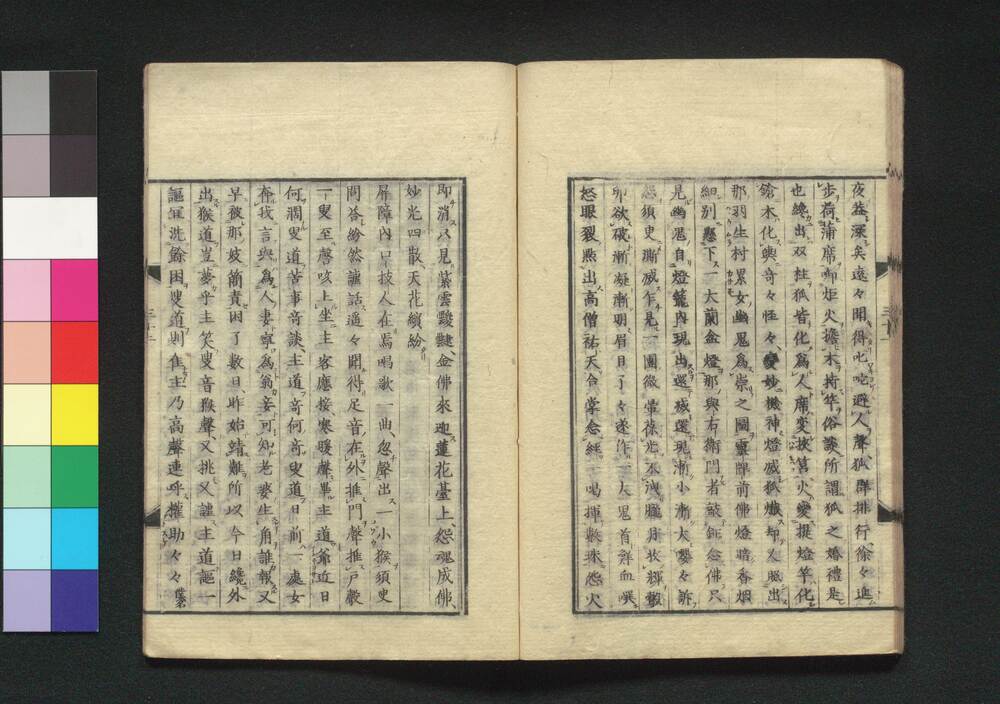 夜益深矣遠々聞得叱咜避人聲狐群排行徐々進
步荷蒲席啣炬火擔木持竿俗談所謂狐之婚禮是
也纔出双柱狐皆化爲人席変挾筥火變提燈竿化
鎗木化輿奇々怪々變妙機神燈滅狐滅却又照出
那羽生村累女幽鬼爲祟之圖靈牌前佛燈暗香烟
細別懸下一大蘭盆燈那與右衛門者鼓鉦念佛只
見幽鬼自燈籠內現出還滅還現漸小漸大嚶々訴
怨須更漸滅乍見一團微暈葆光不洩朧月收輝
卵欲破漸凝漸明眉目了々遂作一大鬼首鮮血噀
怒眼裂㸃出高僧祐天合掌念經一喝揮數珠怨火
即消只見紫雲靉靆金佛來迎蓮花臺上怨魂成佛
妙光四散天花繽紛
屏障內口技人在焉唱歌一曲忽聲出一小猴須臾
問答紛然謔話遙々聞得足音在外推門聲推戶聲
一叟至謦咳上坐主客應接寒暖聲畢主道爺近日
何濶叟道苦事奇談主道奇何奇叟道日前一處女
奔我言與爲人妻寧爲翁妾可知老婆生角誰報又
早被那妓簡責困了數日昨始靖難所以今日纔外
出猴道豈夢乎主笑叟音猴聲又挑又謔主道謳一
謳耳洗餘困叟道則隹主乃高聲連呼